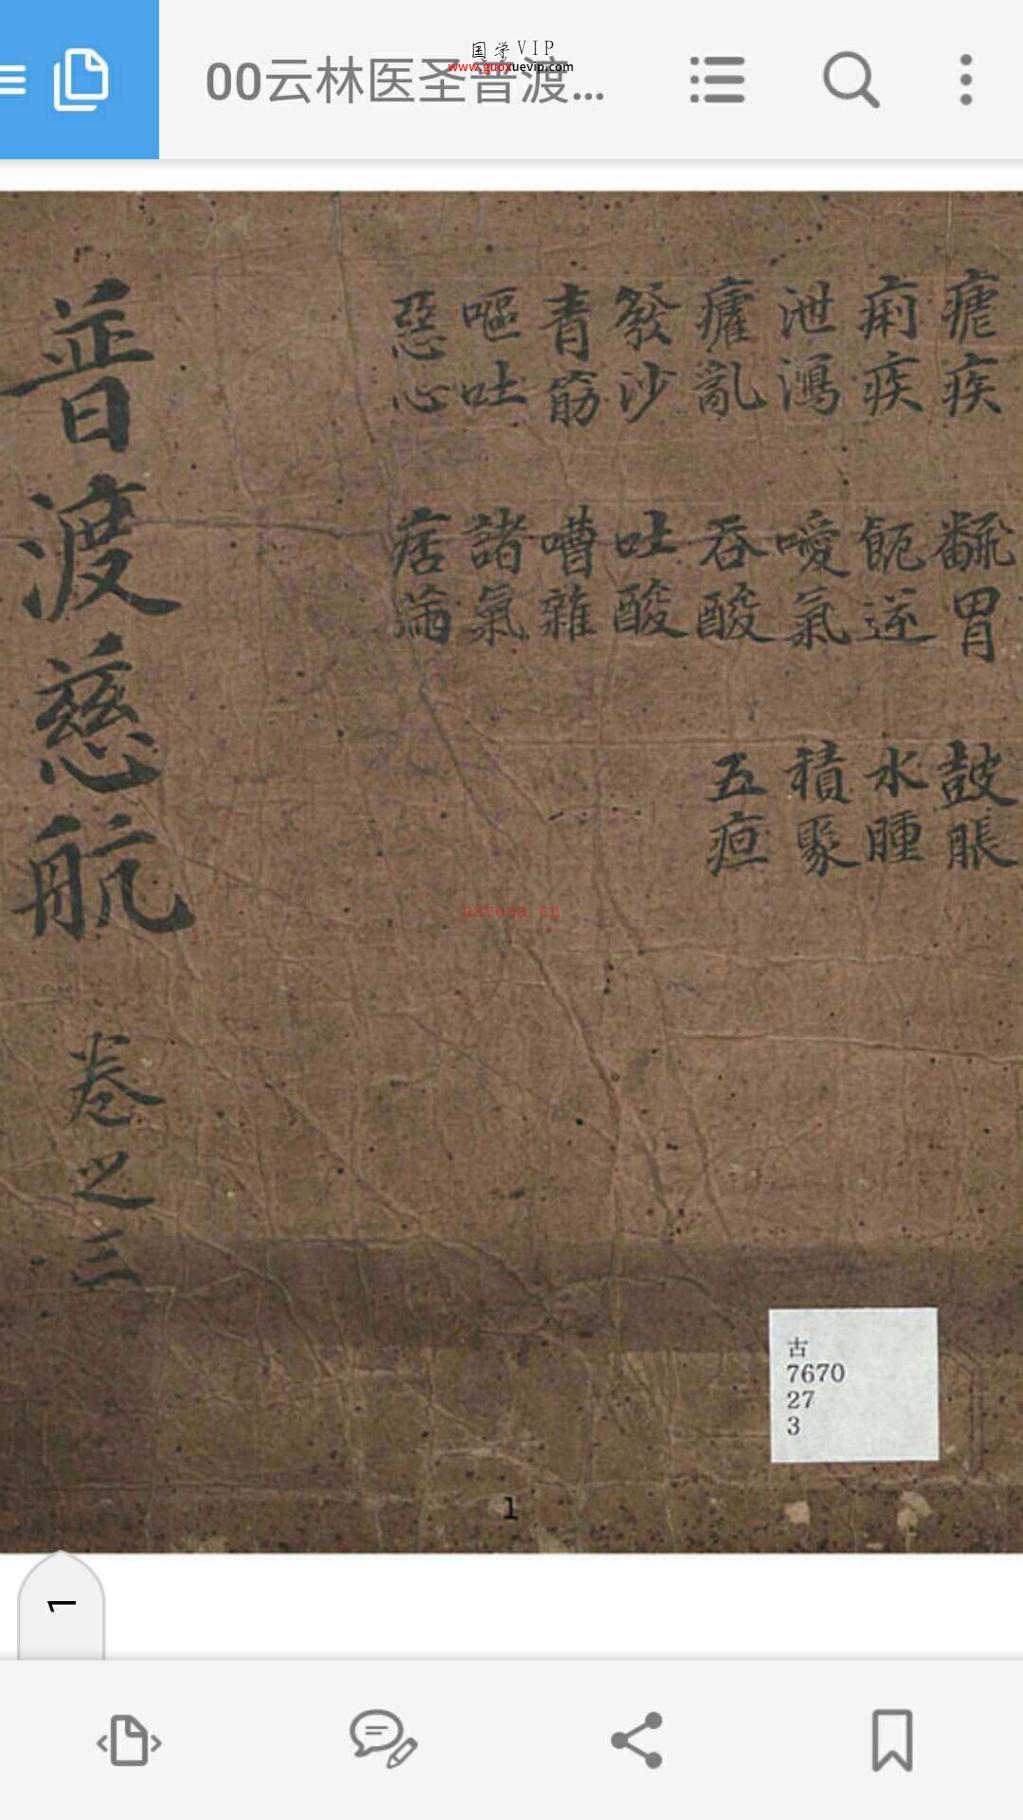 国学VIP
www.guoxuevip.com
00云林医圣普渡...
瘧疾
痢疾
泄瀉
癨亂
發沙
青筋
嘔吐
惡心
翻胃
噯氣
吞酸
吐酸
嘈雜
諸氣
痞滿
鼓脹
水腫
積聚
五疸
普渡慈航 卷之三
nayona.cn
古
7670
27
3
1
1